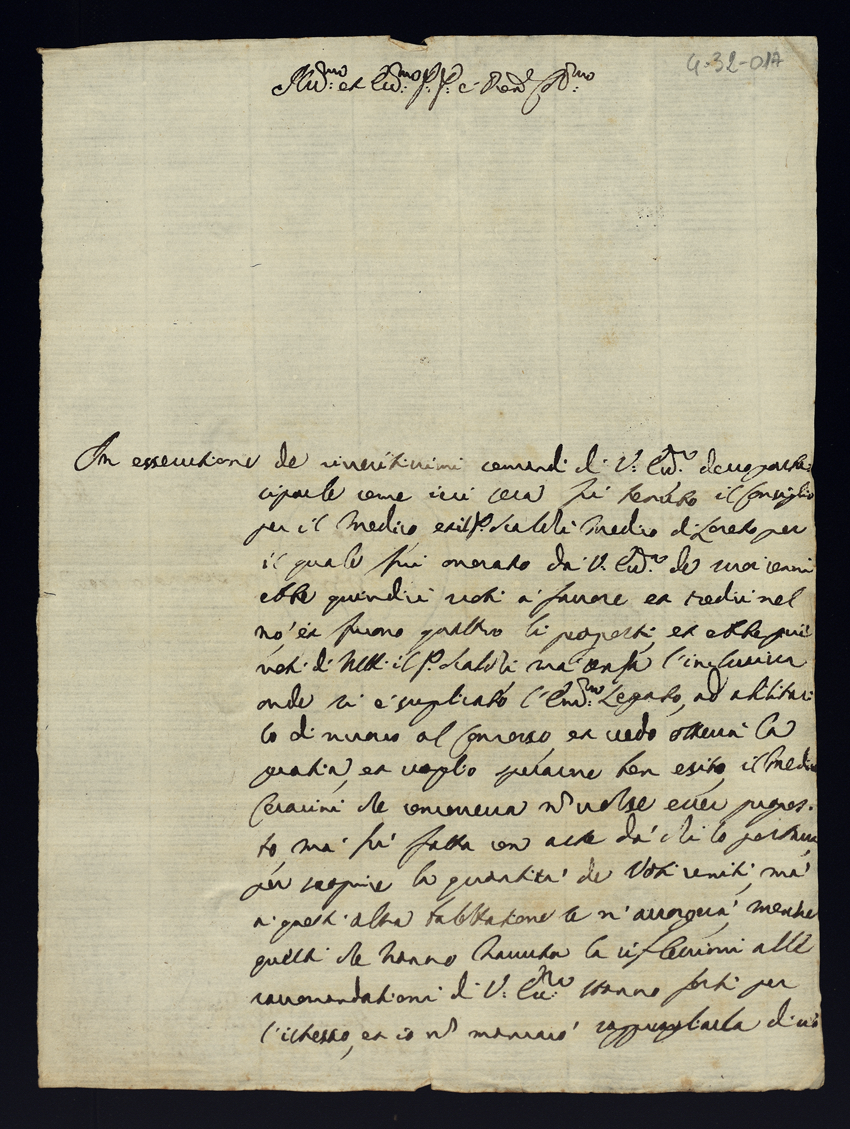 4-32-017
Ill.mo et Ecc.mo
In essecutione de riveritissimi comandi di V: Ecc.a devo parte
ciparle come ieri sera fu tenuto il Consiglio
per il Medico, et il Medico di Loreto per
il quale fui onorato da V. Ecc.a de suoi cenni
ebbe quindici voti a favore et tredici nel
no' et furono quattro li proposti, et ebbe più
voti di tutti il ma con l'inclusiva
onde si è suplicato l'Em.mo Legato, ad abilitar
lo di nuovo al Concorso, et credo otterrà la
gratia, et voglio sperarne ben esito, il Medico
che concorreva n.n volse esser propos-
to, ma' fu fatta con arte da' chi lo portava
per scoprire la quantità de Voti ma'
a quest'altra balottatione mentre
questi che hanno havuta la riflessioni alle
raccomandationi di V: Ecc.a stanno forti per
l'istesso, et io n.n mancarò di no